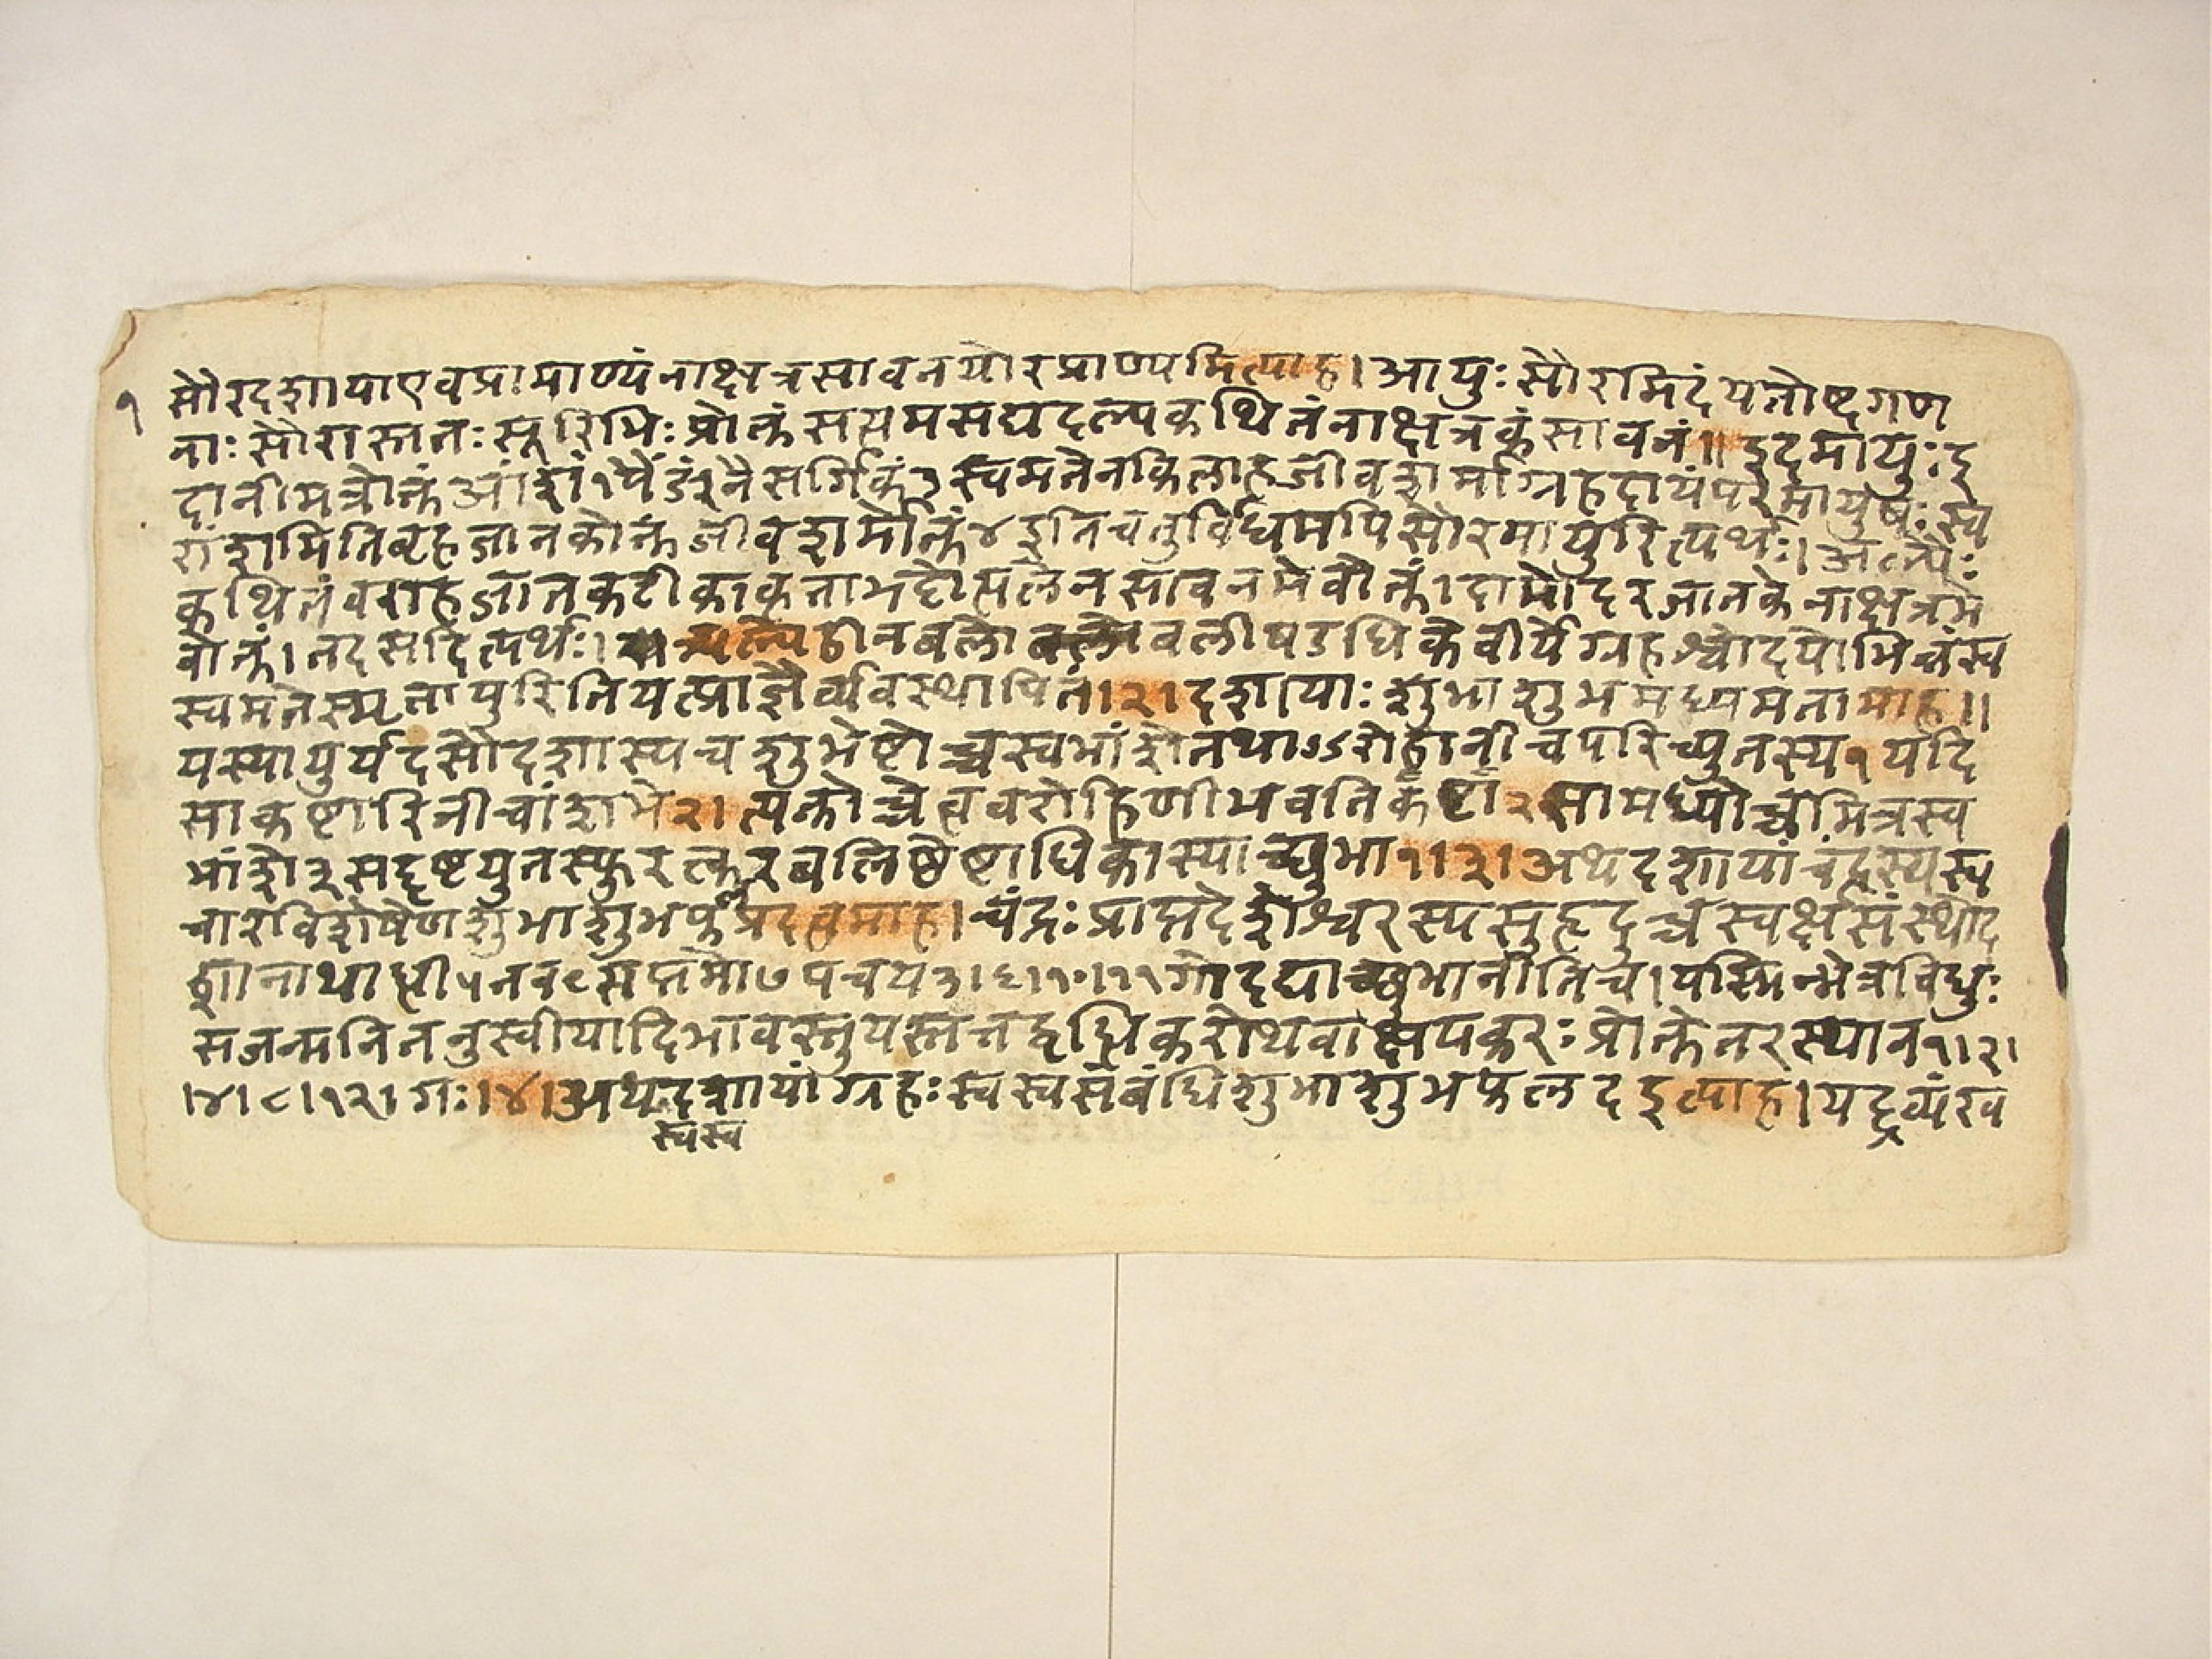 १
सौरदशायाएवप्रामाण्यंनाक्षत्रसावनयोरप्राण्यमित्याह। आयुः सौरमिदंयतोष्टगण
नाः सौरास्ततः सूरिभिः प्रोक्तंसत्यमसद्यदल्पकथितंनाक्षत्रकंसावनं॥ इदमायुः इ
दानीमत्रोक्तंआंशं१पैंडं२नैसर्गिकं३स्वमतेनकिलाहजीवशर्माग्रहदायंपरमायुषः स्व
रांशमितिबृहज्जातकोक्तंजीवशर्मोक्तं४इतिचतुर्विधमपिसौरमायुरित्यर्थः। अल्पैः
कथितंवराहजातकटीकाकृताभट्टोत्पलेनसावनमेवोक्तं। दामोदरजातकेनाक्षत्रमे
वोक्तं। तदसदित्यर्थः। हीनबलो बलीषडधिकेवीर्येग्रहश्चोदयोमिक्तंस्व
स्वमतेस्मृतायुरितियत्प्राज्ञैर्व्यवस्थापितं।२। दशायाः शुभाशुभमध्यमतामाह॥
यस्यायुर्यदसौदशास्यचशुभेष्टोच्चस्वभांशेतथाऽऽरोहानीचपरिच्युतस्य१यदि
साकष्टारिनीचांशभे२। त्यक्तोच्चेत्ववरोहिणीभवतिकष्टा२सामध्योच्चमित्रस्व
भांशे३सद्दृष्टयुतस्फुरत्करबलिष्ठेष्टाधिकास्याच्छुभा१।३। अथदशायांचंद्रस्यस्व
चारविशेषेणशुभाशुभफलप्रदत्वमाह। चंद्रः प्राप्तदशेश्वरस्यसुहृदुच्चस्वर्क्षसंस्थोद
शानाथाद्धी५नव९सप्तमो७पचय३।६।१०।११गोदद्याच्छुभानीतिच। यस्मिन्मेत्रविधुः
सजन्मनितनुस्वीयादिभावस्तुयस्तत्तद्वृद्धिकरोथवाक्षयकरः प्रोक्तेतरस्थान१।२।
।४।८।१२। गः।४। अथदशायांग्रहः स्वस्वसंबंधिशुभाशुभफलदइत्याह। यद्द्रव्यंखच
स्वस्व